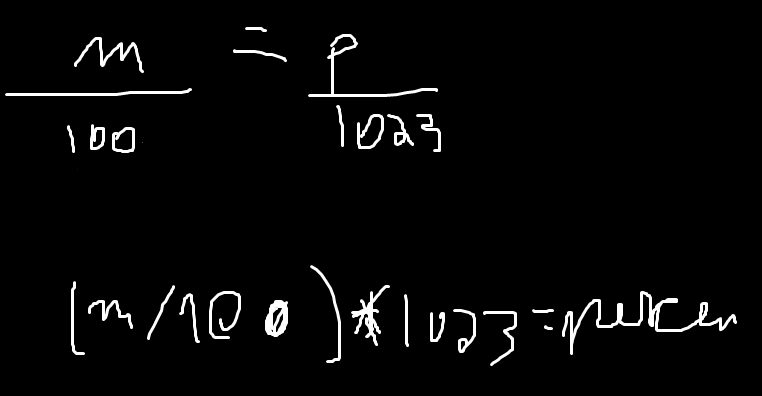 m = p
100 1023
(m/100)*1023=percen